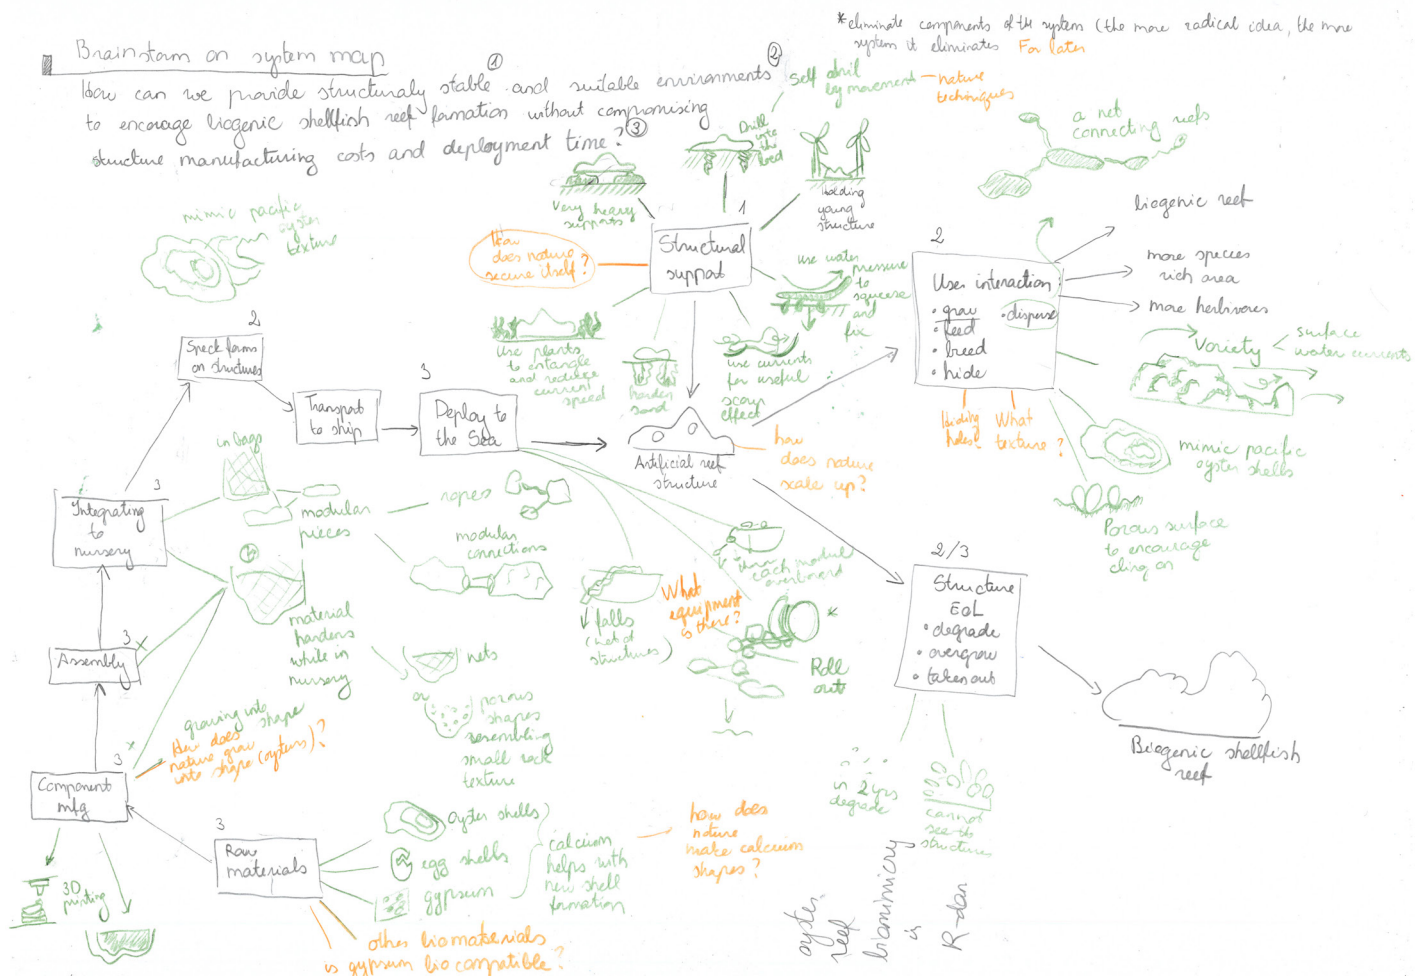 *eliminate components of the system (the more radical idea, the more
system it eliminates For later
Brainstorm on system map
How can we provide structuraly stable ① and suitable environments ②
to encorage biogenic shellfish reef formation without compromising
structure manufacturing costs and deployment time? ③
Self drill
by movement
nature
techniques
a net
connecting reefs
Drill
into
the
bed
Very heavy
supports
Holding
young
structure
mimic pacific
oyster
texture
How
does nature
secure itself?
1
Structural
support
use water
pressure
to
squeese
and
fix
use plants
to entangle
and reduce
current
speed
harden
sand
use currents
for useful
scour
effect
2
User interaction:
• grow
• feed
• breed
• hide
• disperse
biogenic reef
more species
rich area
more herbivores
Variety
surface
water currents
Hiding
holes?
What
texture?
mimic pacific
oyster shells
Porous surface
to encourage
cling on
2
Speck forms
on structures
Transport
to ship
3
Deploy to
the Sea
Artificial reef
structure
how
does nature
scale up?
3
Integrating
to
nursery
in bags
modular
pieces
ropes
modular
connections
material
hardens
while in
nursery
nets
or
porous
shapes
resembling
small rock
texture
falls
(net of
structures)
What
equipment
is there?
each modul
overboard
*
Roll
out
2/3
Structure
EoL
• degrade
• overgrow
• taken out
Biogenic shellfish
reef
in 2 yrs
degrade
cannot
see the
structures
3 x
Assembly
growing into
shape
How does
nature grow
into shape (oysters)?
3 x
Component
mfg
3D
printing
3
Raw
materials
oyster shells
egg shells
gypsum
calcium
helps with
new shell
formation
how does
nature
make calcium
shapes?
other biomaterials
is gypsum biocompatible?
oyster
reef
biomimicry
is
R-dan